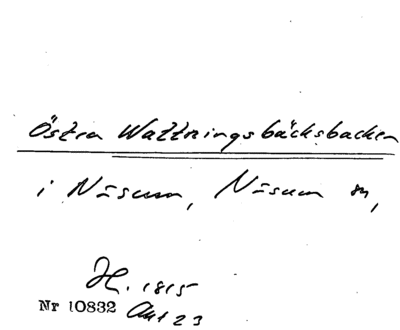 Östen Wattningsbäcksbacken
i Näsum, Näsum sn,
H. 1815
Nr 10832 Aut 23